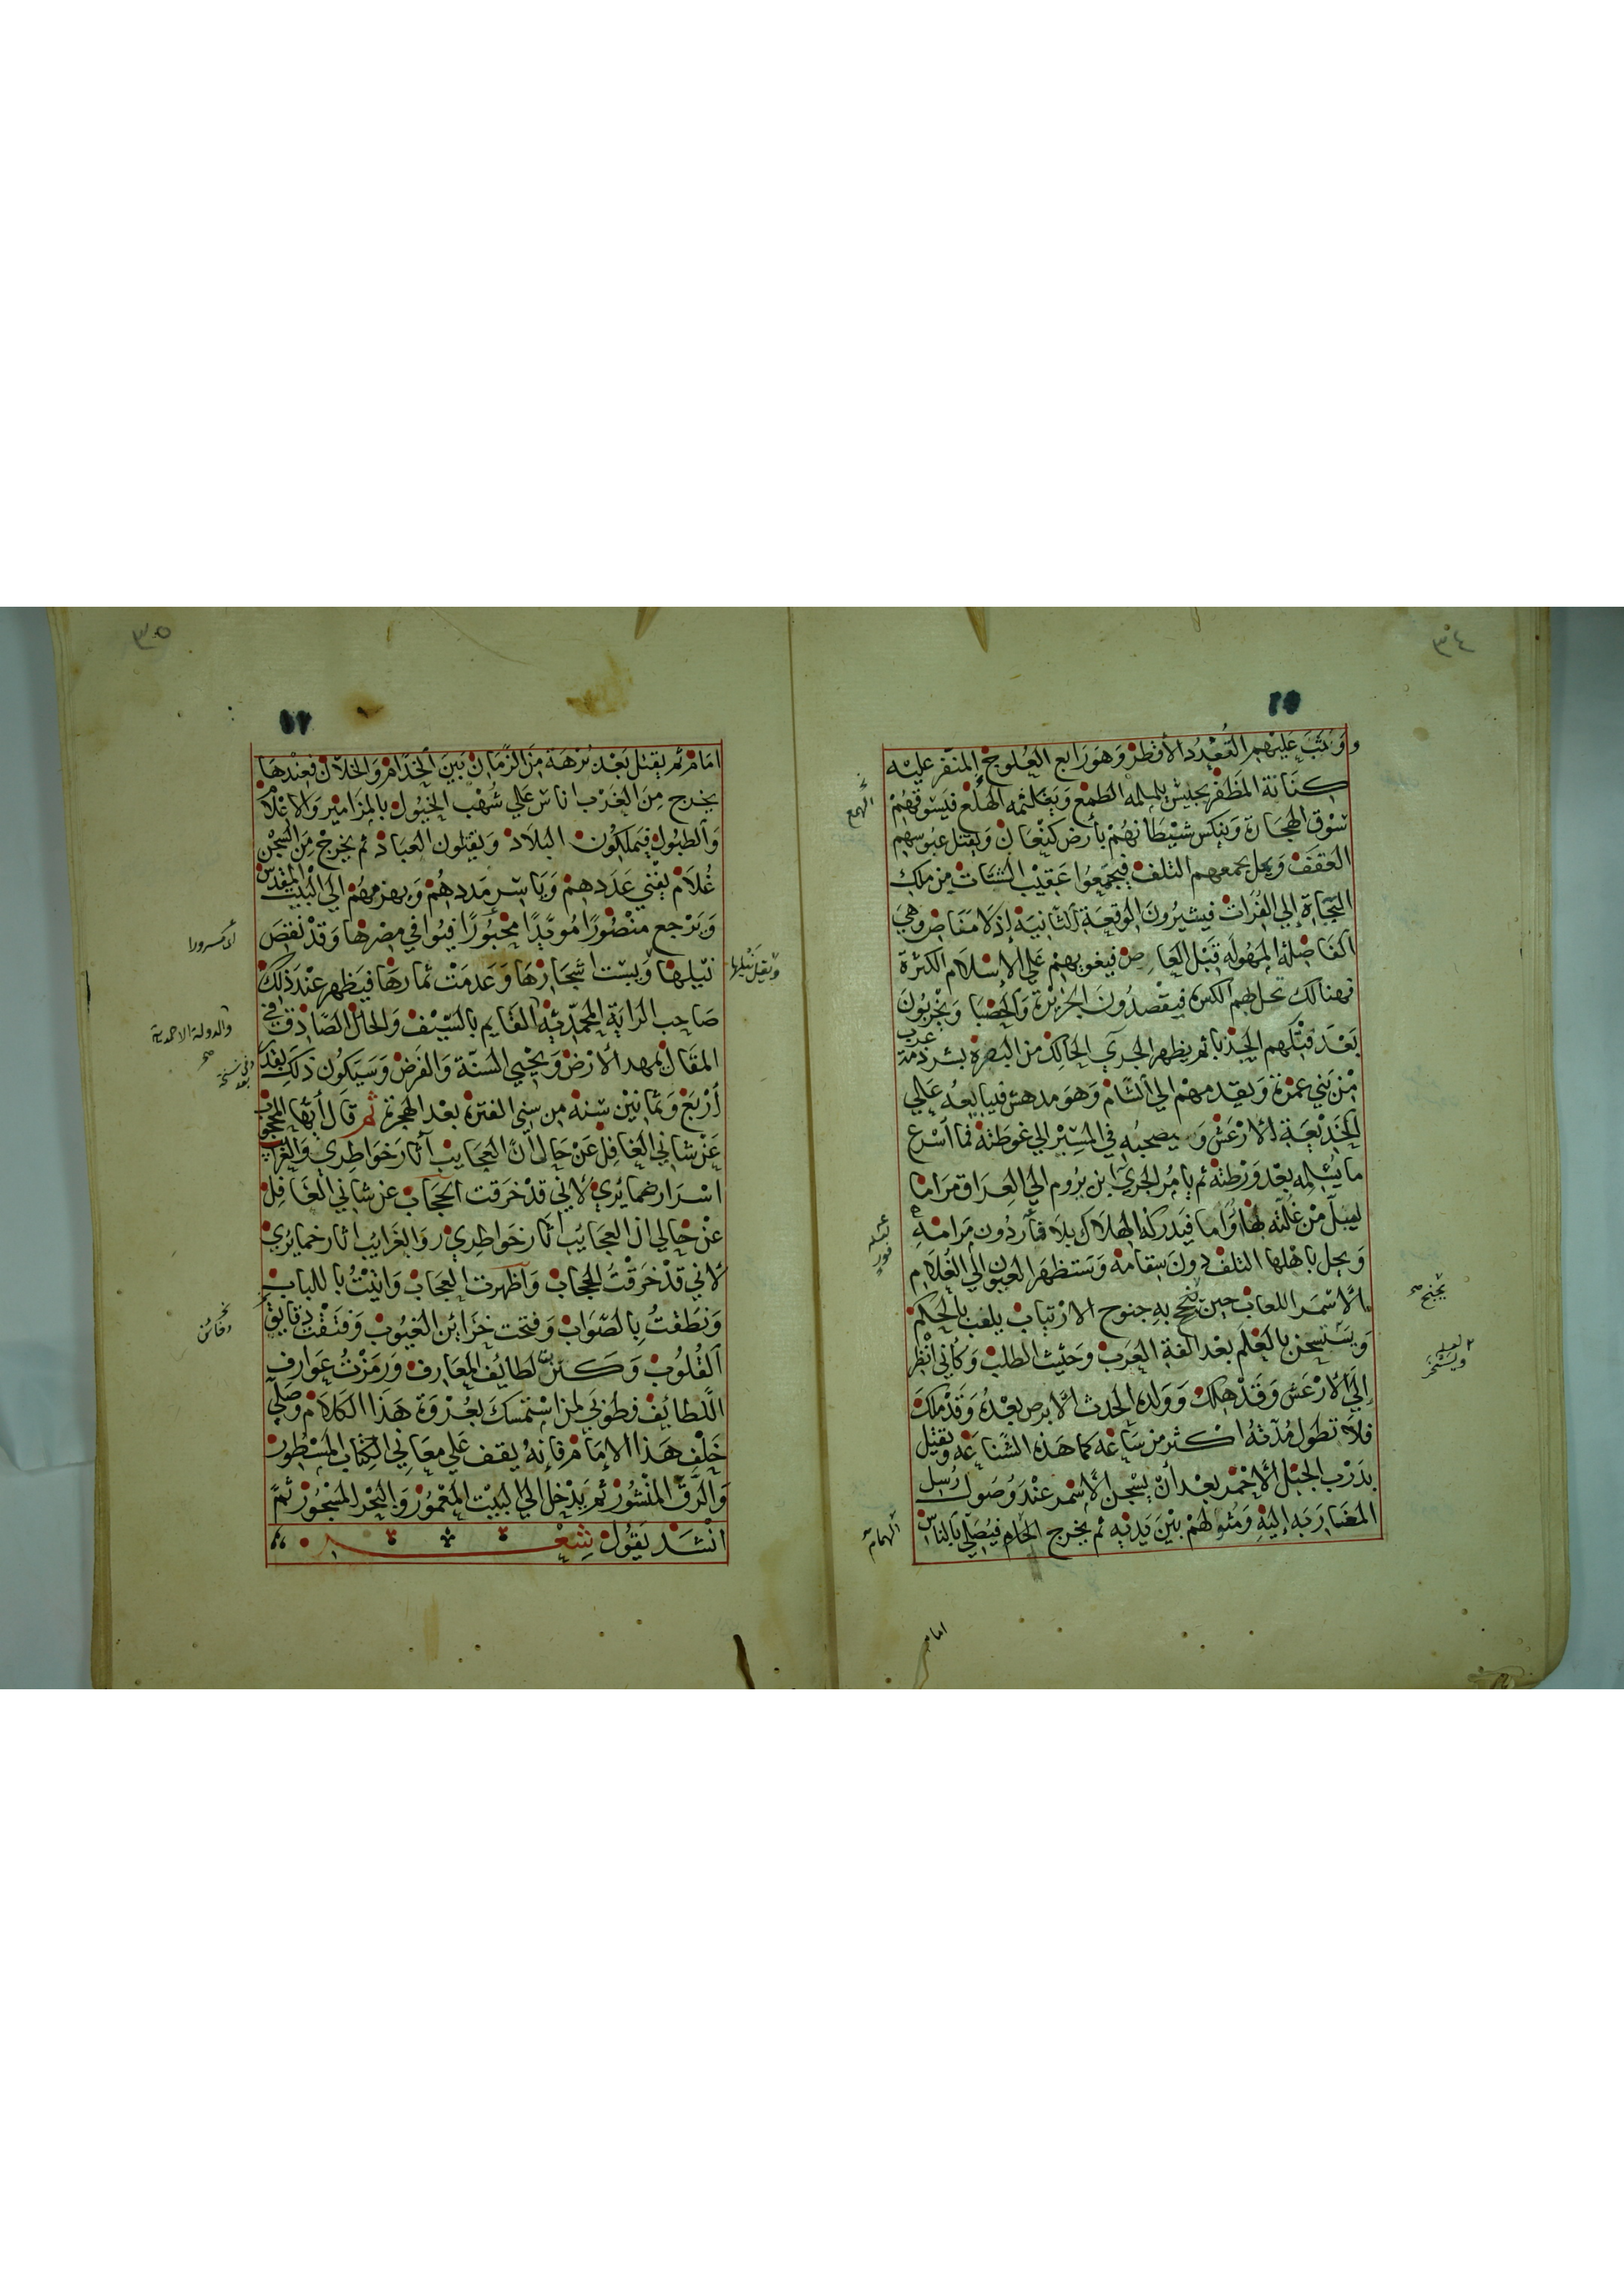 ٣٤
وَيثبَ عَليْهِم القُعْدُد الأفطز وَهوَ رَابع العُلوج المنفر عليه
كنَانة المَظفر بجليش يلملمه الطمع وَيَغلثمه الهلَع فيَسوقهُمْ
سَوْق الهجَارة وَينكس شيْطَانهُمْ بأرض كنْعَان وَيقتل عبُوسهم
العقفَف وَيحل بجمعهم التلف فيجمَعُوا عَقيْب الشتات من ملك
النجَاة إلي الفُرَات فيشيرُونَ الوقعَة الثانيَة إذ لا مَفَاض وَهيَ
الفَاضله المهُوله قبْل العَا ص فيغويهم عَلي الإسلام الكثرة
فهنالك تحل بهم الكسره فيقْصدُون الجزيرَة وَالحضبَا وَيخربُونَ
بَعْدَ قتلهم الجذبا ثم يظهر الجري الحَالك من البصرة بشرذمة عرب
مِنْ بَني عمْرَة وَيقدمهمْ الي الشام وَهوَ مدهش فيبَايعُه عَلي
الخدْيعَة الارْعَش وَسيصحبُه في المسِيْر الي غوطته فما أسرع
ما يُسلمه بعْد وَرْطته ثم يأمُر الجريّ ابن يرُوم الي العِراق مرَاما
ليبل من غُلّته بهَا أوَاما فيَدركهُ الهلَاك بلا فتأ دُون مَرَامهِ
وَيحل باهلها التلف دُونَ سقامه وَتستظهرَ العيُون إلي الغُلَام
الأسْمَر اللعاب حين تجنح بهِ جنوح الارْتياب يلقب بالحكم
وَيسْتسخن بالعَلم بعْد الفة العَرب وَحثيث الطلب وَكأني أنْظر
إلَي الأرْعَش وَقدْ هلك وَوَلده الحدث الأبرص بعْدهُ وَقدْ ملك
فلَا تطول مُدّتهُ اكثر من سَاعَه كما هَذه الشناعَه وَيقتل
بدَرْب الجبْل الأحمر بعْد أن يسْجن الأسمر عنْد وُصول رُسل
المغَاربَه إليْه وَمثولهمْ بَيْن يَديه ثم يخرج الحَام فيُصلي بالناس
الهمع
تجنح صح
الهمام
امام
٣٥
امَام ثم يقتل بَعْد بُرْهَة منَ الزّمَان بَيْن الخدَّام وَالخلّان فعنْدهَا
يخرج منَ الغَرْب اناس عَلي شُهْب الخيُول بالمزَامير وَالاعْلَام
وَالطبُول فيَملكُون البلَاد وَيقتلون العبَاد ثم يخرجْ مِنَ السجْن
غُلَام يفْني عَدَدهمْ وَيَاسر مَددهُمْ وَيهزمهُمْ الي البيْت المقدس
وَيَرْجع منصُورًا مُويّدًا محْبُورًا فيُوافي مصْرهَا وَقدْ نقصَ
نيْلهَا وَيبست اشجَارهَا وَعَدمَتْ ثمارهَا فيَظهر عنْد ذلك
صَاحب الرَايَة المحمّديّة القايم بالسَّيْف وَالحال الصَّادق في
المقَال يمهد الأرْض وَيحْيي السّنّة وَالفرْض وَسَيَكُون ذلك بعْد
أرْبَعْ وَثمانيْن سَنه من سِني الفترة بعْد الهجرة ثم قال أيهَا المحجوب
عَنْ شاني الغَافِل عَنْ حَالي أنّ العجايب آثار خَوَاطِري وَالغرايب
اسْرَار ضمائري لأني قدْ خرَقت الحجَاب عن شاني الغَافل
عَنْ حَالي ان العجَايُب آثار خَوَاطِري وَالغَرايُب اثار ضمايُري
لأني قدْ خرَقْتُ الحجاب وَأظهرت العجَاب وَاتيْتُ باللباب
وَنطَقتُ بالصّوَاب وَفتحت خزَائن الغيُوب وَفتقْت دقايق
القلُوب وَكنزت لطائف المعَارف وَرمَزتُ عوَارف
اللَطائِف فطُوبَي لمن اسْتمسَك بعُرْوَة هَذا الكَلام وَصَلّي
خَلْف هَذا الإمَام فإنهُ يقف عَلي معَاني الكتَاب المسْطور
وَالرّقّ المنشُور ثمَ يَدْخل الي البيْت المعْمُور وَالبَحْر المسْجُور ثمَّ
انْشدَ يَقُول شِعْر
ويقل نيلها
والدولة الاحمدية صح